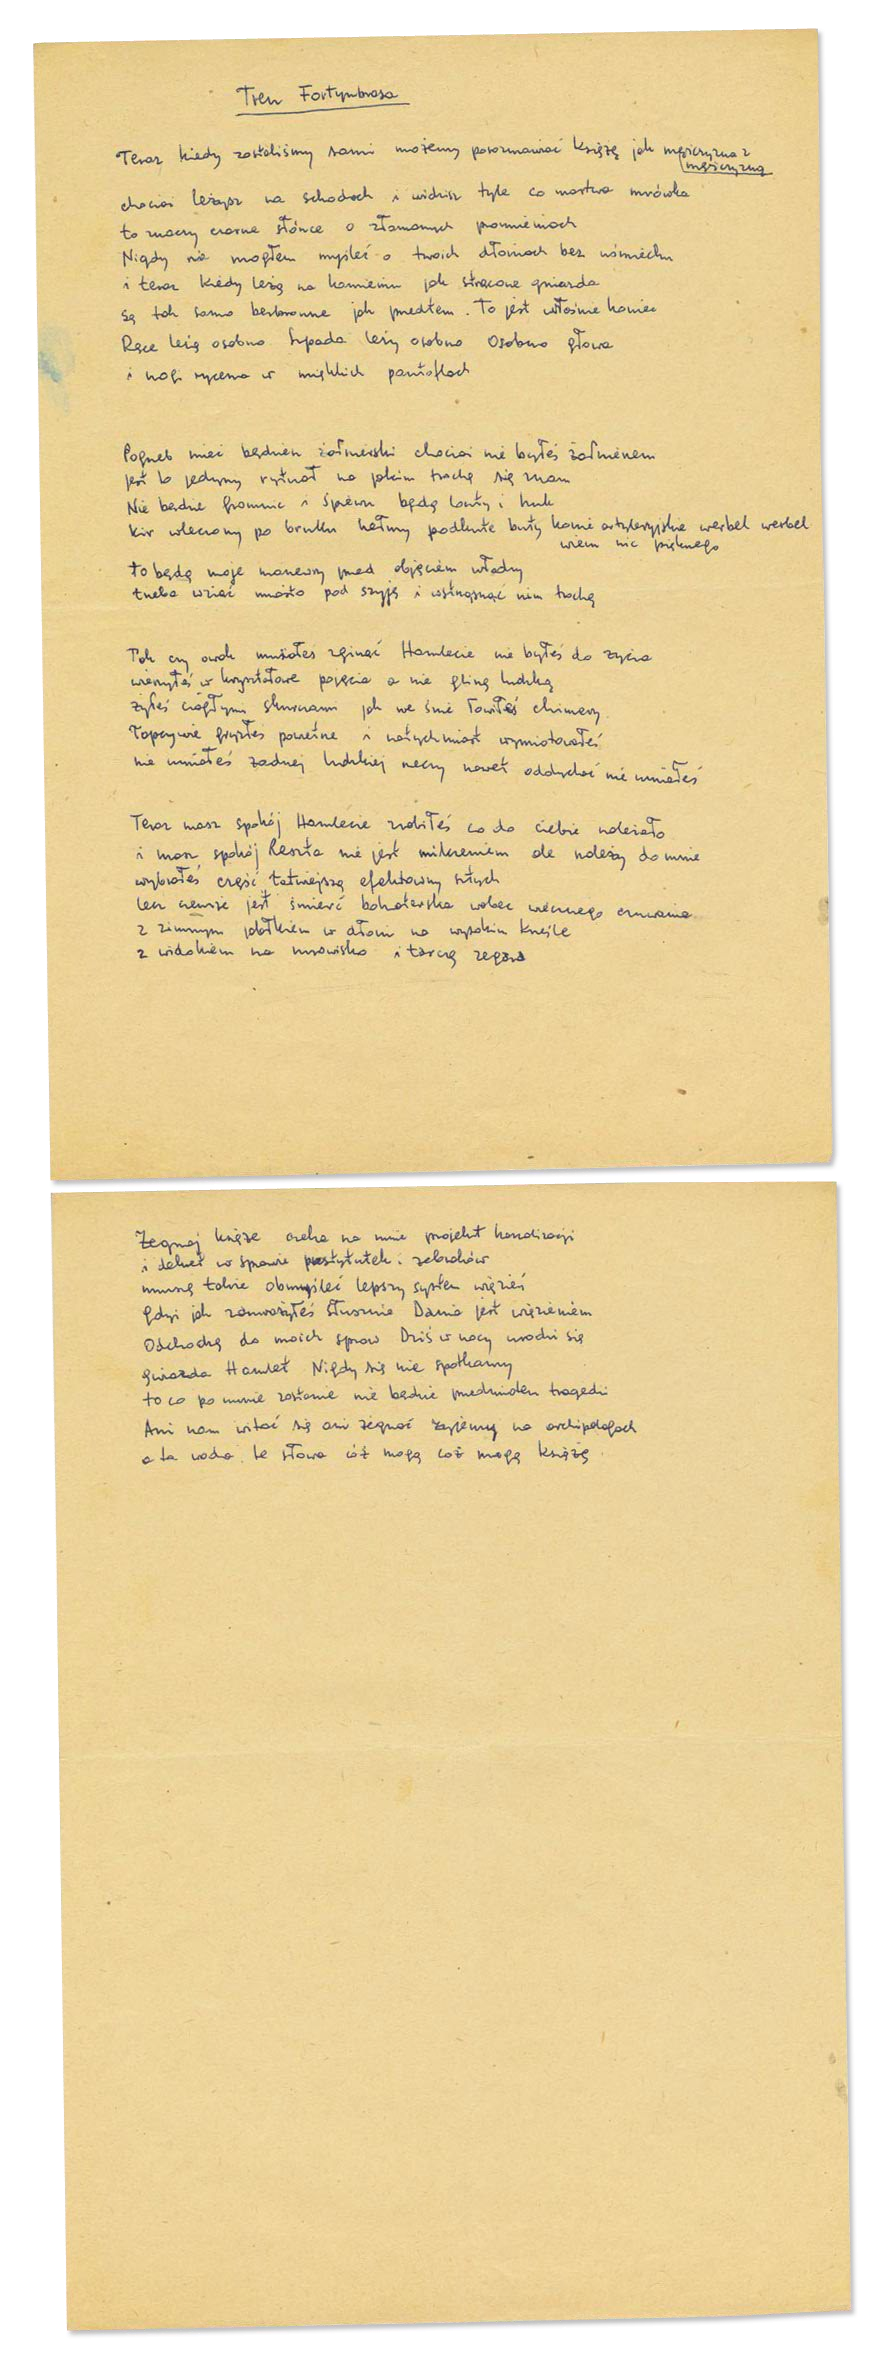 Tren Fortynbrasa
Teraz kiedy zostaliśmy sami możemy porozmawiać Książę jak mężczyzna z
mężczyzną
chociaż leżysz na schodach i widzisz tyle co martwa mrówka
to znaczy czarne słońce o złamanych promieniach
Nigdy nie mogłem myśleć o twoich dłoniach bez uśmiechu
i teraz kiedy leżą na kamieniu jak strącone gniazda
są tak samo bezbronne jak przedtem. To jest właśnie koniec
Ręce leżą osobno Szpada leży osobno Osobno głowa
i nogi rycerza w miękkich pantoflach
Pogrzeb mieć będziesz żołnierski chociaż nie byłeś żołnierzem
jest to jedyny rytuał na jakim trochę się znam
Nie będzie gromnic i śpiewu będą lonty i huk
Kir wleczony po bruku hełmy podkute buty konie artyleryjskie werbel werbel
wiem nic pięknego
to będą moje manewry przed objęciem władzy
trzeba wziąć miasto pod szyję i wstrząsnąć nim trochę
Tak czy owak musiałeś zginąć Hamlecie nie byłeś do życia
wierzyłeś w kryształowe pojęcia a nie glinę ludzką
żyłeś ciągłymi skurczami jak we śnie łowiłeś chimery
łapczywie gryzłeś powietrze i natychmiast wymiotowałeś
nie umiałeś żadnej ludzkiej rzeczy nawet oddychać nie umiałeś
Teraz masz spokój Hamlecie zrobiłeś co do ciebie należało
i masz spokój Reszta nie jest milczeniem ale należy do mnie
wybrałeś część łatwiejszą efektowny sztych
lecz czemże jest śmierć bohaterska wobec wiecznego czuwania
z zimnym jabłkiem w dłoni na wysokim krześle
z widokiem na mrowisko i tarczę zegara
Żegnaj książę czeka na mnie projekt kanalizacji
i dekret w sprawie prostytutek i żebraków
muszę także obmyśleć lepszy system więzień
gdyż jak zauważyłeś słusznie Dania jest więzieniem
Odchodzę do moich spraw Dziś w nocy urodzi się
gwiazda Hamlet Nigdy się nie spotkamy
to co po mnie zostanie nie będzie przedmiotem tragedii
Ani nam witać się ani żegnać żyjemy na archipelagach
a ta woda te słowa cóż mogą cóż mogą książę